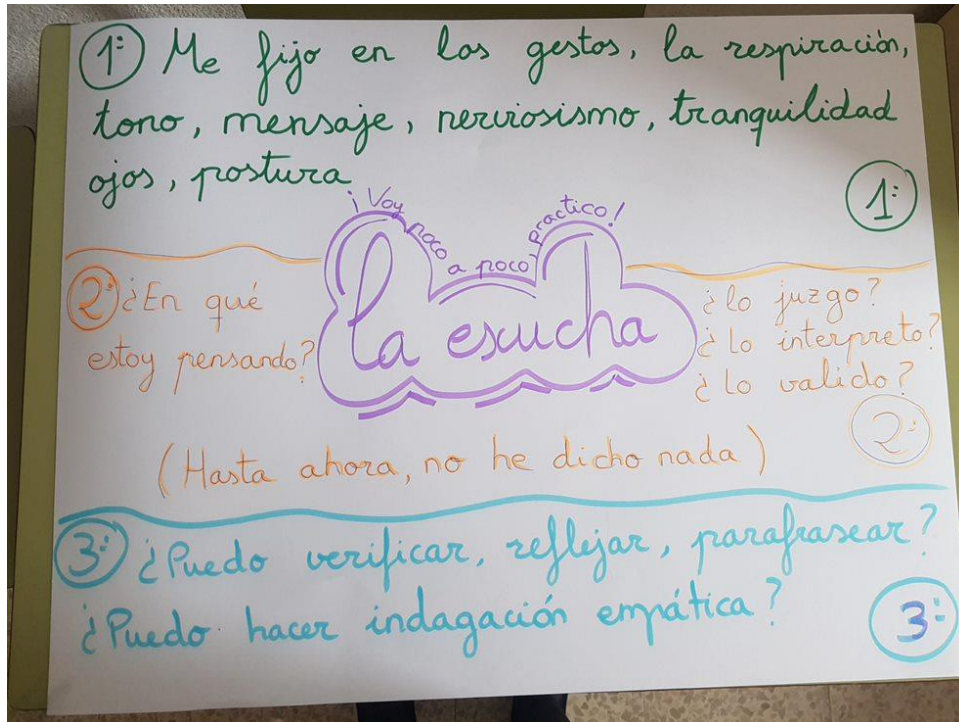 1º Me fijo en los gestos, la respiración,
tono, mensaje, nerviosismo, tranquilidad
ojos, postura
1º
¡Voy poco a poco, practico!
la escucha
2º ¿En qué
estoy pensando?
¿lo juzgo?
¿Lo interpreto?
¿Lo valido?
2º
(Hasta ahora, no he dicho nada)
3º ¿Puedo verificar, reflejar, parafrasear?
¿Puedo hacer indagación empática?
3º